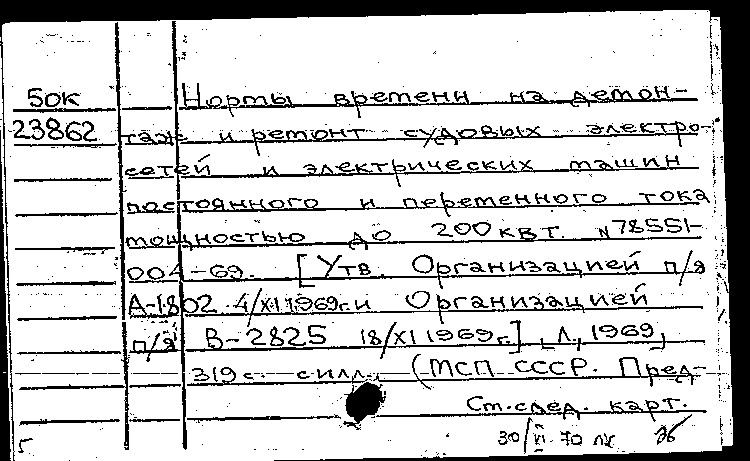 50К
23862
Нормы времени на демон-
таж и ремонт судовых электро-
сетей и электрических машин
постоянного и переменного тока
мощностью до 200 квт. N 78551-
004-69. [Утв. Организацией п/я
А-1802 4/XI 1969г. и Организацией
п/я В-2825 18/XI 1969г.] Л., 1969,
319 с. с илл. (МСП СССР. Пред-
Ст. след. карт.
30/VI-70 лк